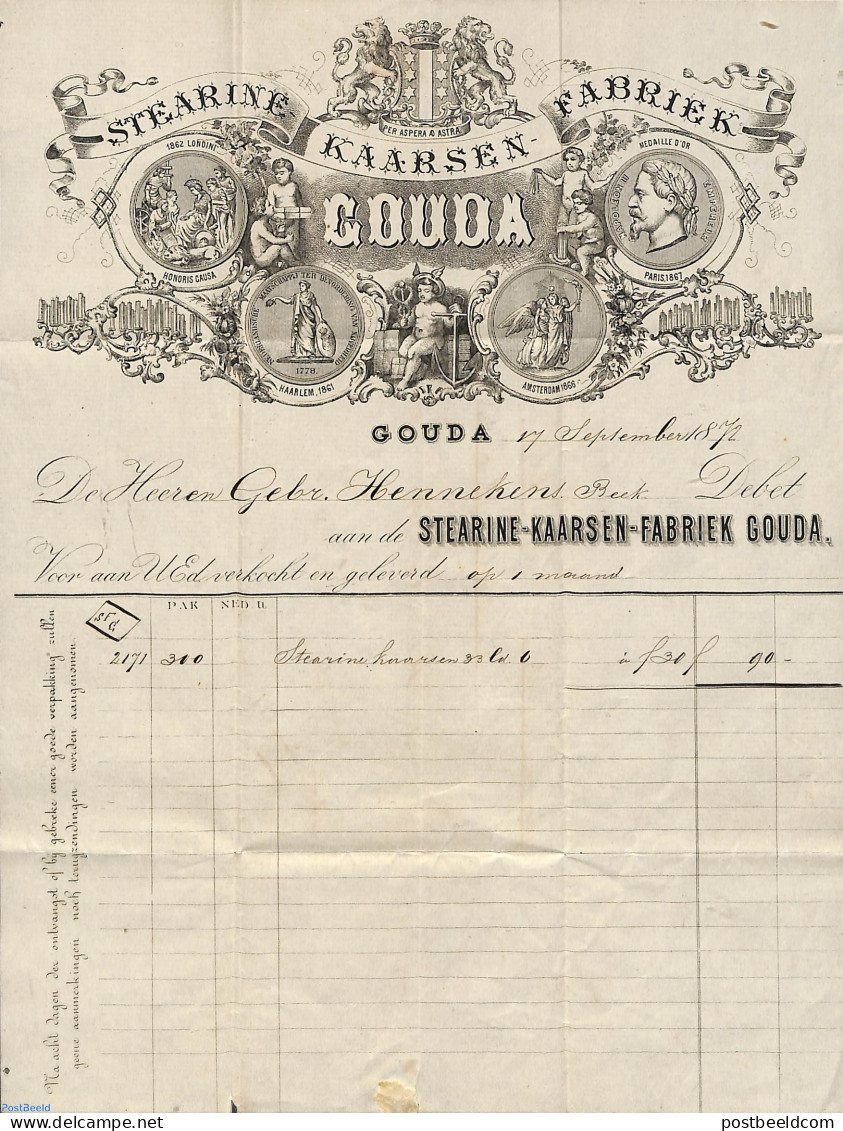 STEARINE-
KAARSEN-
FABRIEK
GOUDA
PER ASPERA AD ASTRA
1862 LONDINI
HONORIS CAUSA
MEDAILLE D'OR
NAPOLEON III EMPEREUR
PARIS, 1867
NEDERLANDSCHE MAATSCHAPPIJ TER BEVORDERING VAN NIJVERHEID
1778.
HAARLEM, 1861
AMSTERDAM 1866
GOUDA 17 September 1872
De Heeren Gebr. Hennekens Beek Debet
aan de STEARINE-KAARSEN-FABRIEK GOUDA.
Voor aan UEd verkocht en geleverd op 1 maand
PAK NED. ℔.
SF
G.
2171 300 Stearine kaarsen 33 Cd. 6 à f 30 f 90 -
Na acht dagen der ontvangst of by gebreke eener goede verpakking zullen
geene aanmerkingen noch terugzendingen worden aangenomen.
PostBeeld
postbeeldcom